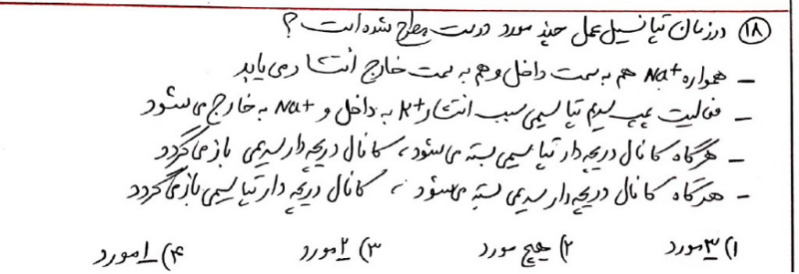 ۱۸) در زمان پتانسیل عمل چند مورد درست مطرح شده است؟
– همواره Na+ هم به سمت داخل و هم به سمت خارج انتشار می‌یابد
– فعالیت پمپ سدیم پتاسیمی سبب انتشار K+ به داخل و Na+ به خارج می‌شود
– هرگاه کانال دریچه‌دار پتاسیمی بسته می‌شود، کانال دریچه‌دار سدیمی باز می‌گردد
– هرگاه کانال دریچه‌دار سدیمی بسته می‌شود، کانال دریچه‌دار پتاسیمی باز می‌گردد
۱) ۳ مورد ۲) هیچ مورد ۳) ۲ مورد ۴) ۱ مورد